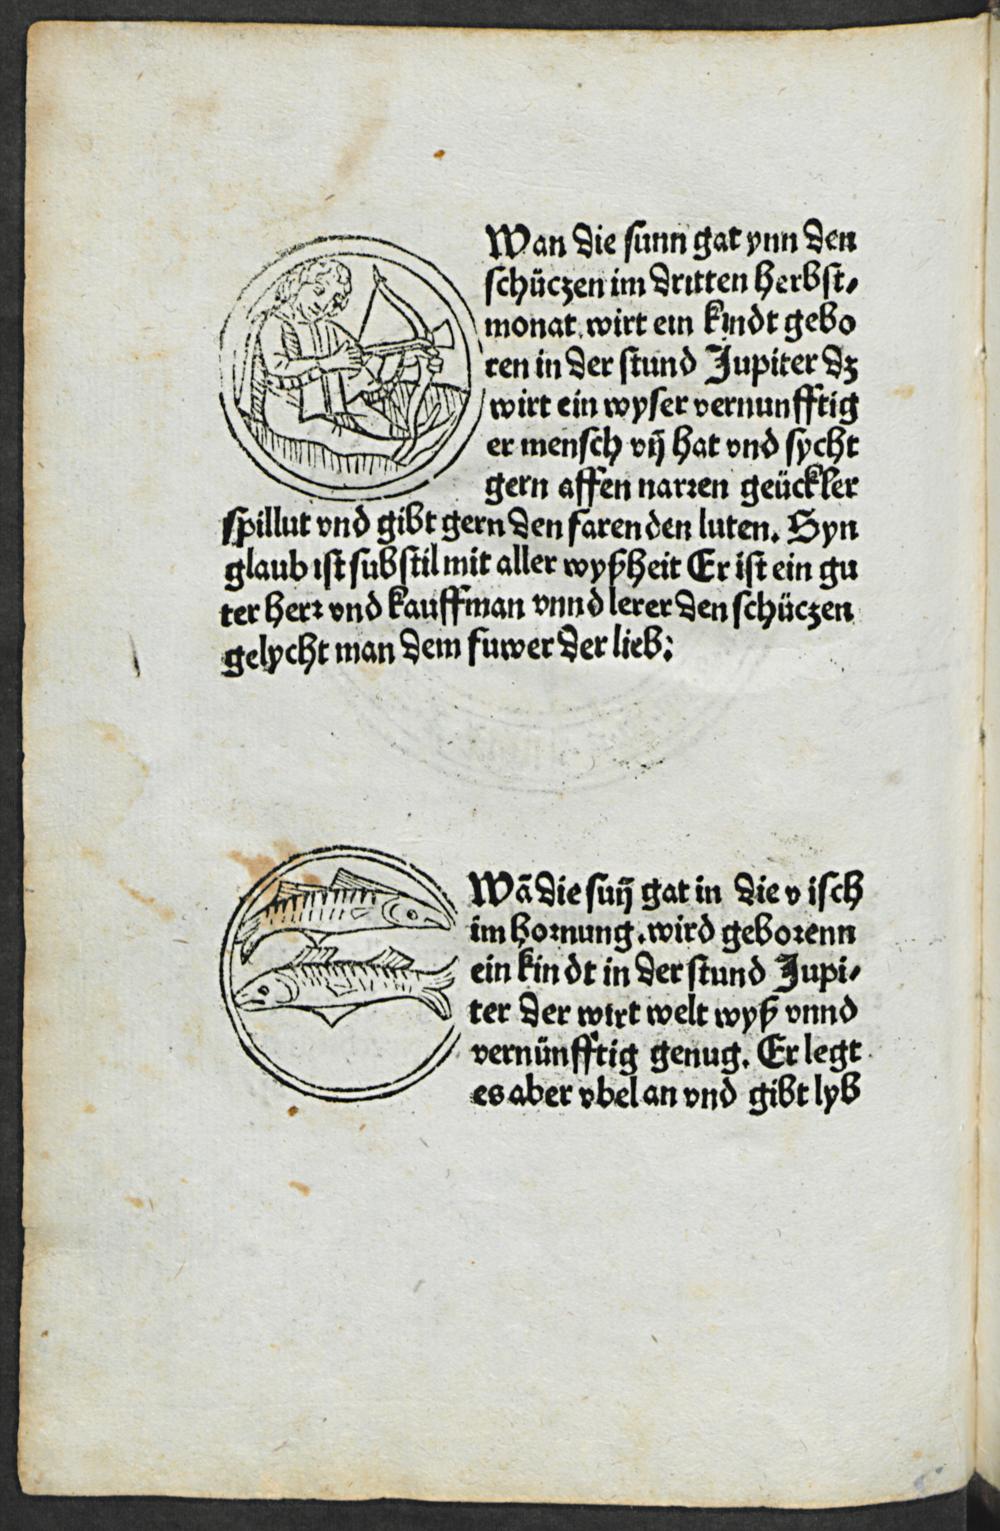 Wan die sunn gat ynn den
schüczen im dritten herbst⸗
monat. wirt ein kindt gebo
ren in der stund Jupiter dz
wirt ein wyser vernunfftig
er mensch vn̄ hat vnd sycht
gern affen narꝛen geückler
spillut vnd gibt gern den farenden luten. Syn
glaub ist substil mit aller wyßheit Er ist ein gu
ter herꝛ vnd kauffman vnnd lerer den schüczen
gelycht man dem fuwer der lieb:
Wā die sun̄ gat in die visch
im hoꝛnung. wird geboꝛenn
ein kindt in der stund Jupi⸗
ter der wirt welt wyß vnnd
vernünfftig genug. Er legt
es aber vbel an vnd gibt lyb